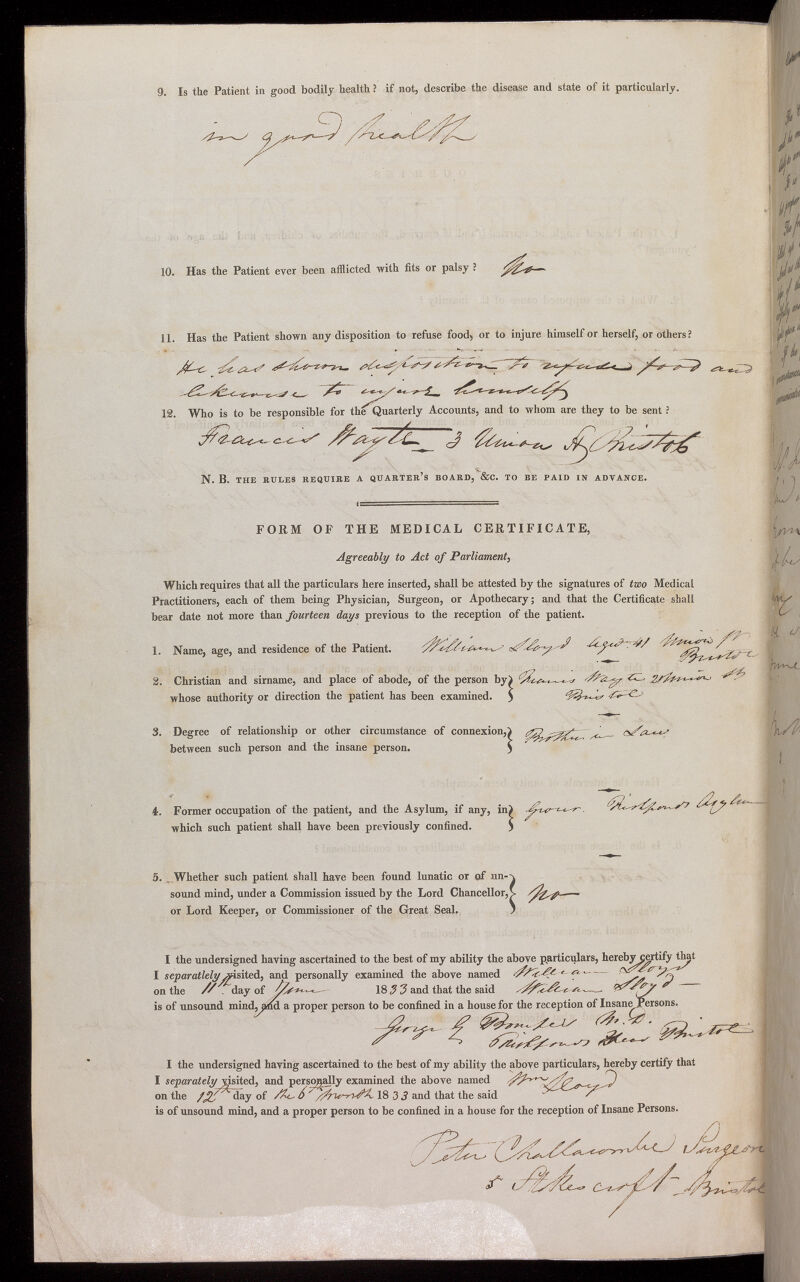 9. Is the Patient in good bodily health? if not, describe the disease and state of it particularly.
in good health
10. Has the Patient ever been afflicted with fits or palsy? No
11. Has the Patient shown any disposition to refuse food, or to injure himself or herself, or others?
He has shown disposition to refuse food and
likewise to injure himself
12. Who is to be responsible for the Quarterly Accounts, and to whom are they to be sent?
Francis Wayte 3 Union St Bristol
N. B. THE RULES REQUIRE A QUARTER'S BOARD, &C. TO BE PAID IN ADVANCE.
FORM OF THE MEDICAL CERTIFICATE,
Agreeably to Act of Parliament,
Which requires that all the particulars here inserted, shall be attested by the signatures of two Medical
Practitioners, each of them being Physician, Surgeon, or Apothecary; and that the Certificate shall
bear date not more than fourteen days previous to the reception of the patient.
1. Name, age, and residence of the Patient. William Lloyd aged 41 Union St
Bristol
2. Christian and sirname, and place of abode, of the person by Francis Wayte Union St
whose authority or direction the patient has been examined. Bristol
3. Degree of relationship or other circumstance of connexion, Brother in Law
between such person and the insane person.
4. Former occupation of the patient, and the Asylum, if any, in Grocer. Fishponds Asylum
which such patient shall have been previously confined.
5. Whether such patient shall have been found lunatic or of un-
sound mind, under a Commission issued by the Lord Chancellor, No
or Lord Keeper, or Commissioner of the Great Seal.
I the undersigned having ascertained to the best of my ability the above particulars, hereby certify that
I separatlely visited, and personally examined the above named William Lloyd
on the 11th day of June 1833 and that the said William Lloyd
is of unsound mind, and a proper person to be confined in a house for the reception of Insane Persons.
George G Bompas M.D.
Fishponds Bristol
I the undersigned having ascertained to the best of my ability the above particulars, hereby certify that
I separately visited, and personally examined the above named Wm Lloyd
on the 12th day of the 6th month 1833 and that the said
is of unsound mind, and a proper person to be confined in a house for the reception of Insane Persons.
Peter Challacombe Surgeon
5 Stokes croft Bristol